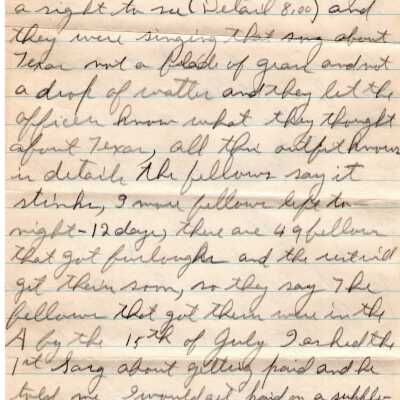 a sight to see (Detail 8:00) and
they were singing that song about
Texas not a blade of grass and not
a drop of watter and they let the
officers know what they thought
about Texas, all this outfit knows
is detail, The fellows say it
stinks, 9 more fellows left to-
night - 12 days, there are 49 fellows
that got furloughs and the rest will
get theirs soon, so they say The
fellows that got them were in the
A by the 15th of July I asked the
1st Sarg about getting paid and he
told me I would get paid on a supple-